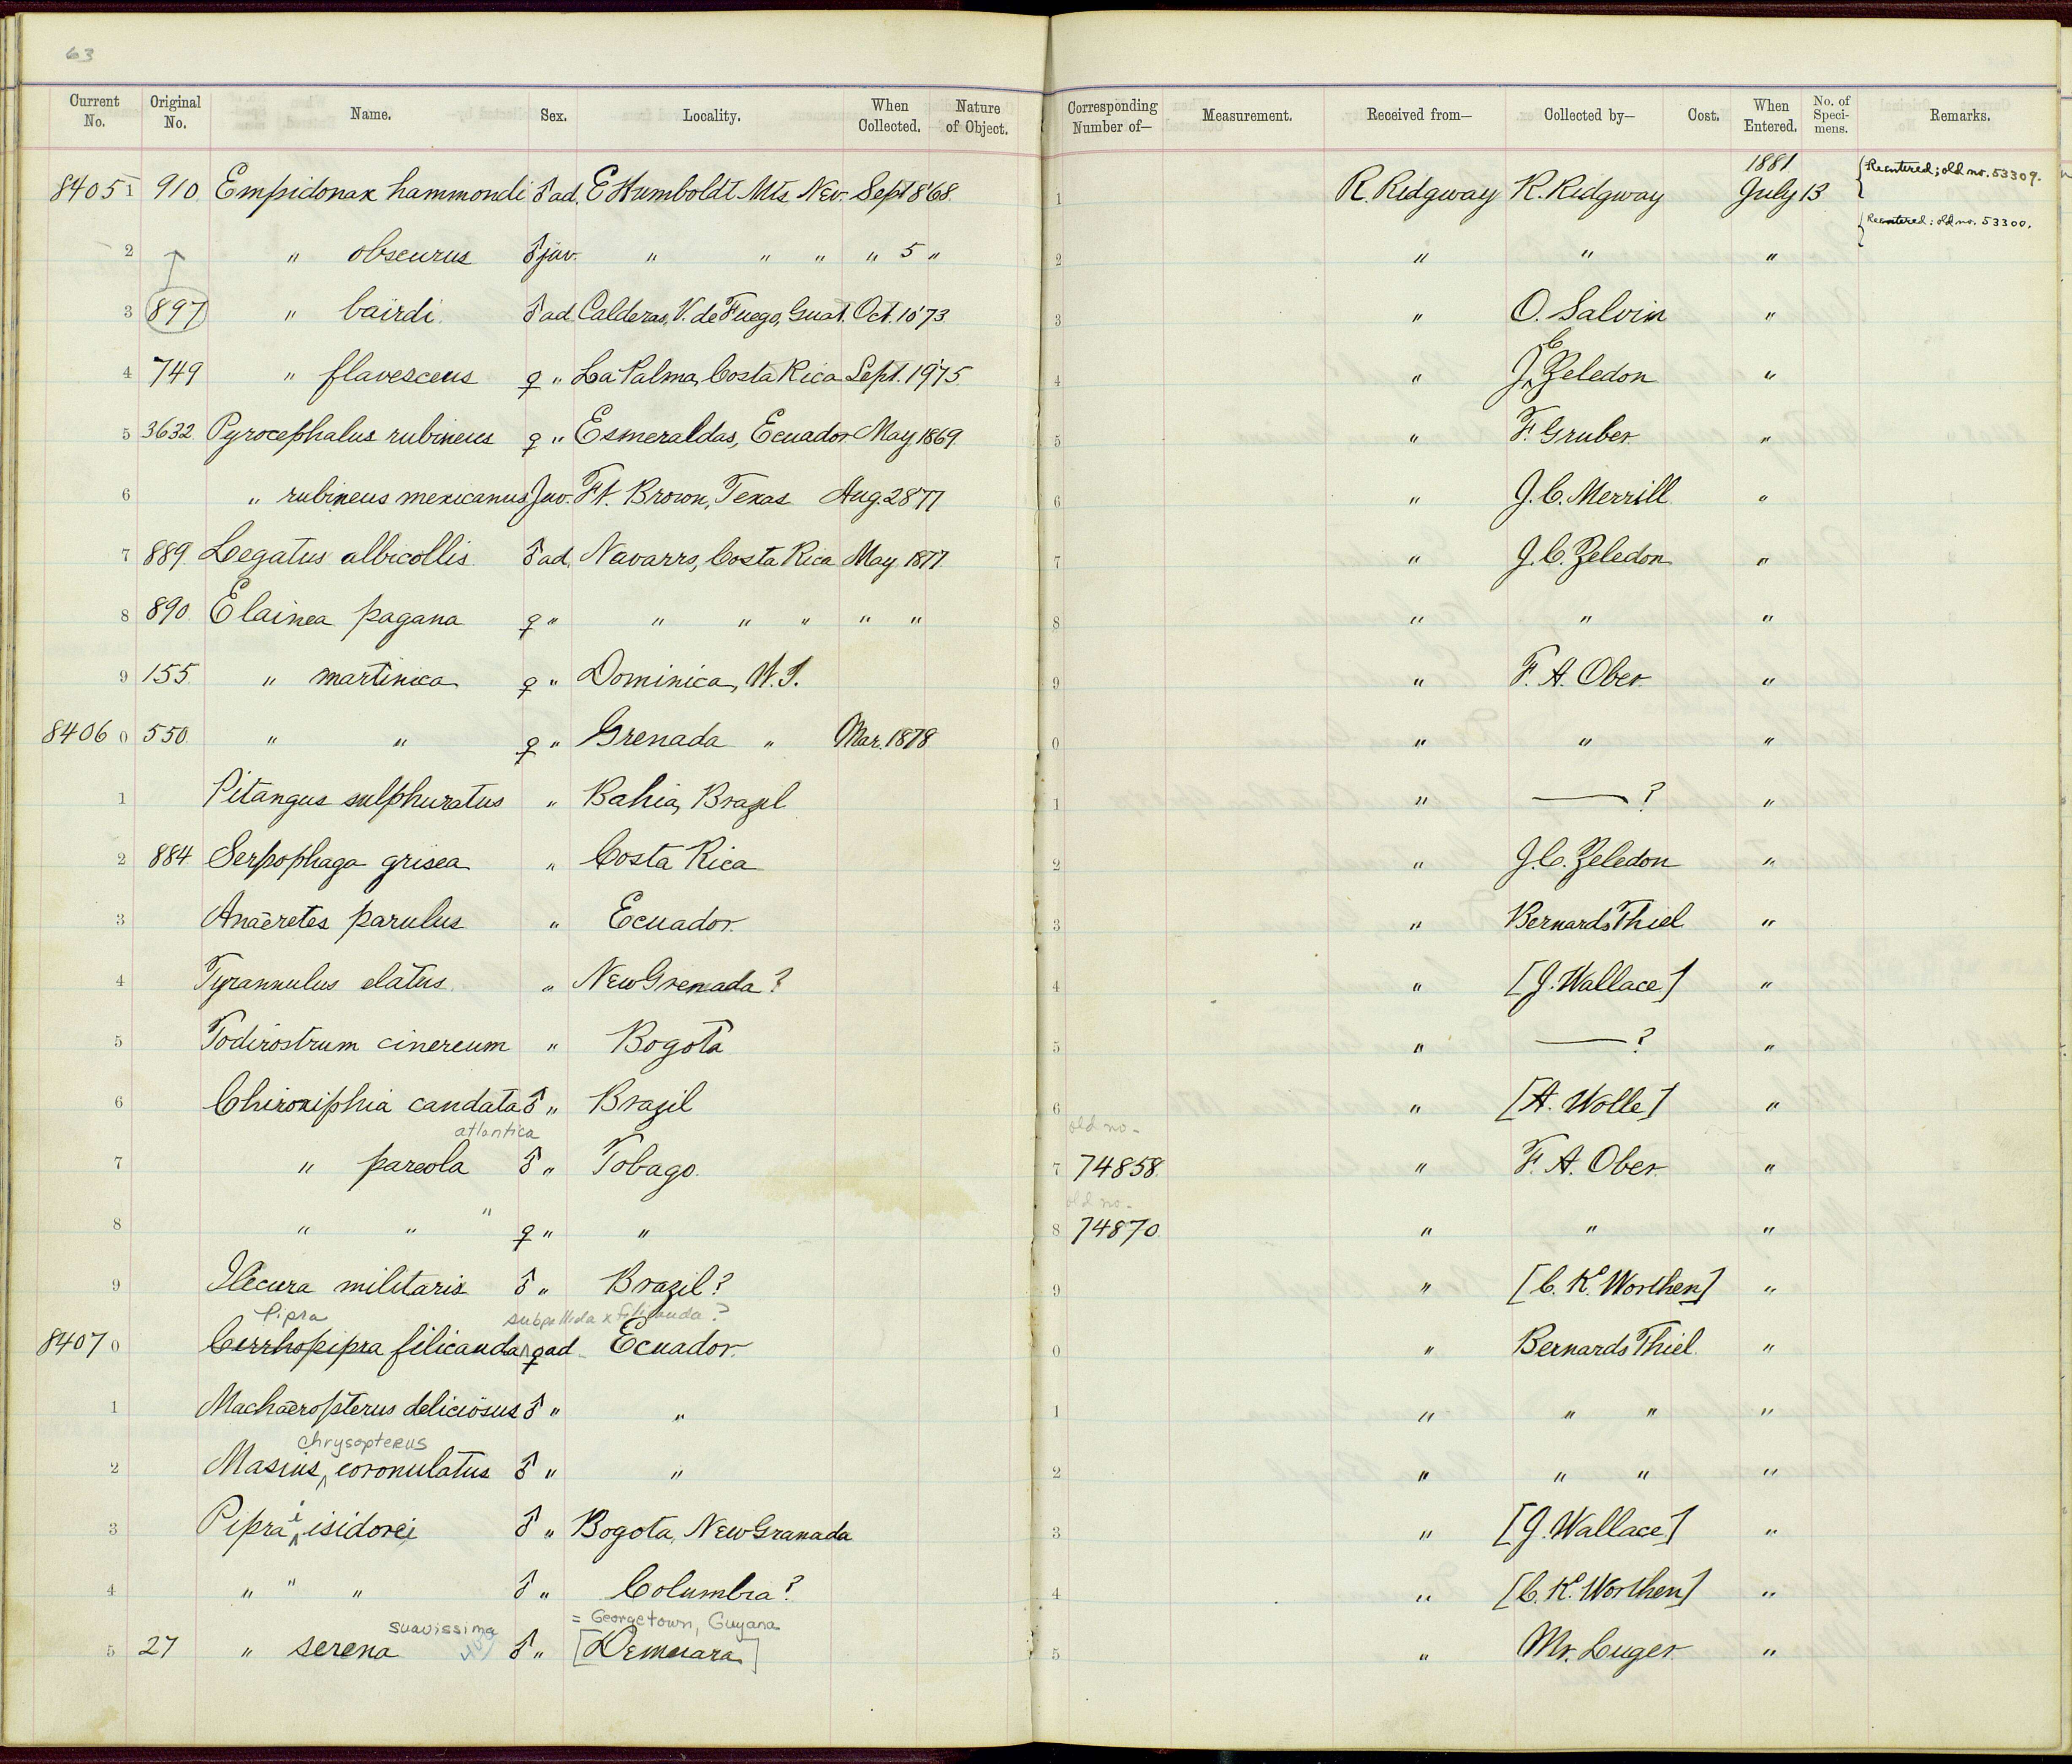 63
Current No. Original No. Name. Sex. Locality. When Collected. Nature of Object. Corresponding Number of— Measurement. Received from— Collected by— Cost. When Entered. No. of Specimens. Remarks.
84051 910 Empidonax hammondi ♂ ad. E Humboldt Mts. Nev. Sept 8 '68. 1 R. Ridgway R. Ridgway 1881 July 13 Reentered; old no. 53309.
2 " obscurus ♂ juv. " " " " 5 " 2 " " " Reentered: old no. 53300.
3 897 " bairdi ♂ ad. Calderas, V. de Fuego, Guat. Oct. 10 '73. 3 " O. Salvin "
4 749 " flavescens ♀ " La Palma, Costa Rica Sept. 19 '75 4 " J. C. Zeledon "
5 3632 Pyrocephalus rubineus ♀ " Esmeraldas, Ecuador May 1869 5 " F. Gruber "
6 " rubineus mexicanus Juv. Ft. Brown, Texas Aug. 28 '77 6 " J. C. Merrill "
7 889. Legatus albicollis ♂ ad. Navarro, Costa Rica May 1877 7 " J. C. Zeledon "
8 890 Elainea pagana ♀ " " " " " " 8 " " "
9 155 " martinica ♀ " Dominica, W. I. 9 " F. A. Ober "
84060 550 " " ♀ " Grenada " Mar. 1878 0 " " "
1 Pitangus sulphuratus " Bahia, Brazil 1 " —? "
2 884 Serpophaga grisea " Costa Rica 2 " J. C. Zeledon "
3 Anaeretes parulus " Ecuador 3 " Bernard Thiel "
4 Tyrannulus elatus " New Grenada? 4 " [J. Wallace] "
5 Todirostrum cinereum " Bogota 5 " —? "
6 Chiroxiphia caudata ♂ " Brazil 6 " [A. Wolle] "
atlantica old no.
7 " pareola ♂ " Tobago. 7 74858 " F. A. Ober "
old no.
8 " " " ♀ " " 8 74870 " " "
9 Ilicura militaris ♂ " Brazil? 9 " [C. K. Worthen] "
Pipra subpallida x filicauda?
84070 Cirrhopipra filicauda ♀ ad. Ecuador. 0 " Bernard Thiel "
1 Machaeropterus deliciosus ♂ " " 1 " " " "
chrysopterus
2 Masius coronulatus ♂ " " 2 " " " "
3 Pipra i isidorei ♂ " Bogota, New Granada 3 " [J. Wallace] "
4 " " " ♂ " Columbia? 4 " [C. K. Worthen] "
suavissima = Georgetown, Guyana
5 27 " serena ♂ " [Demerara] 5 " Mr. Luger "